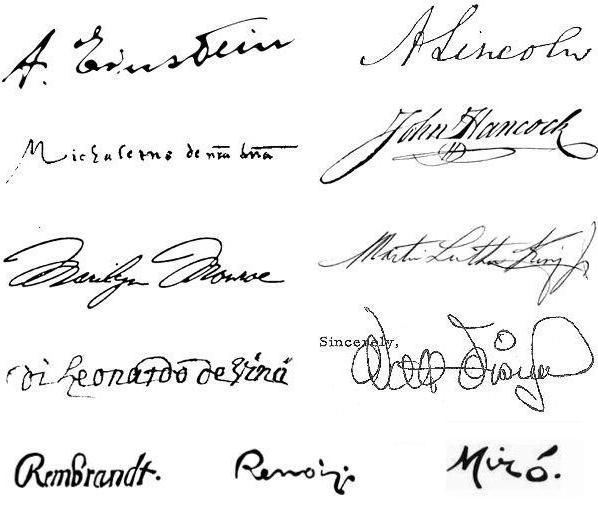 A. Einstein
A Lincoln
Michelagno
John Hancock
Marilyn Monroe
Martin Luther King Jr
Sincerely,
Walt Disney
di Leonardo de Vinci
Rembrandt.
Renoir.
Miró.